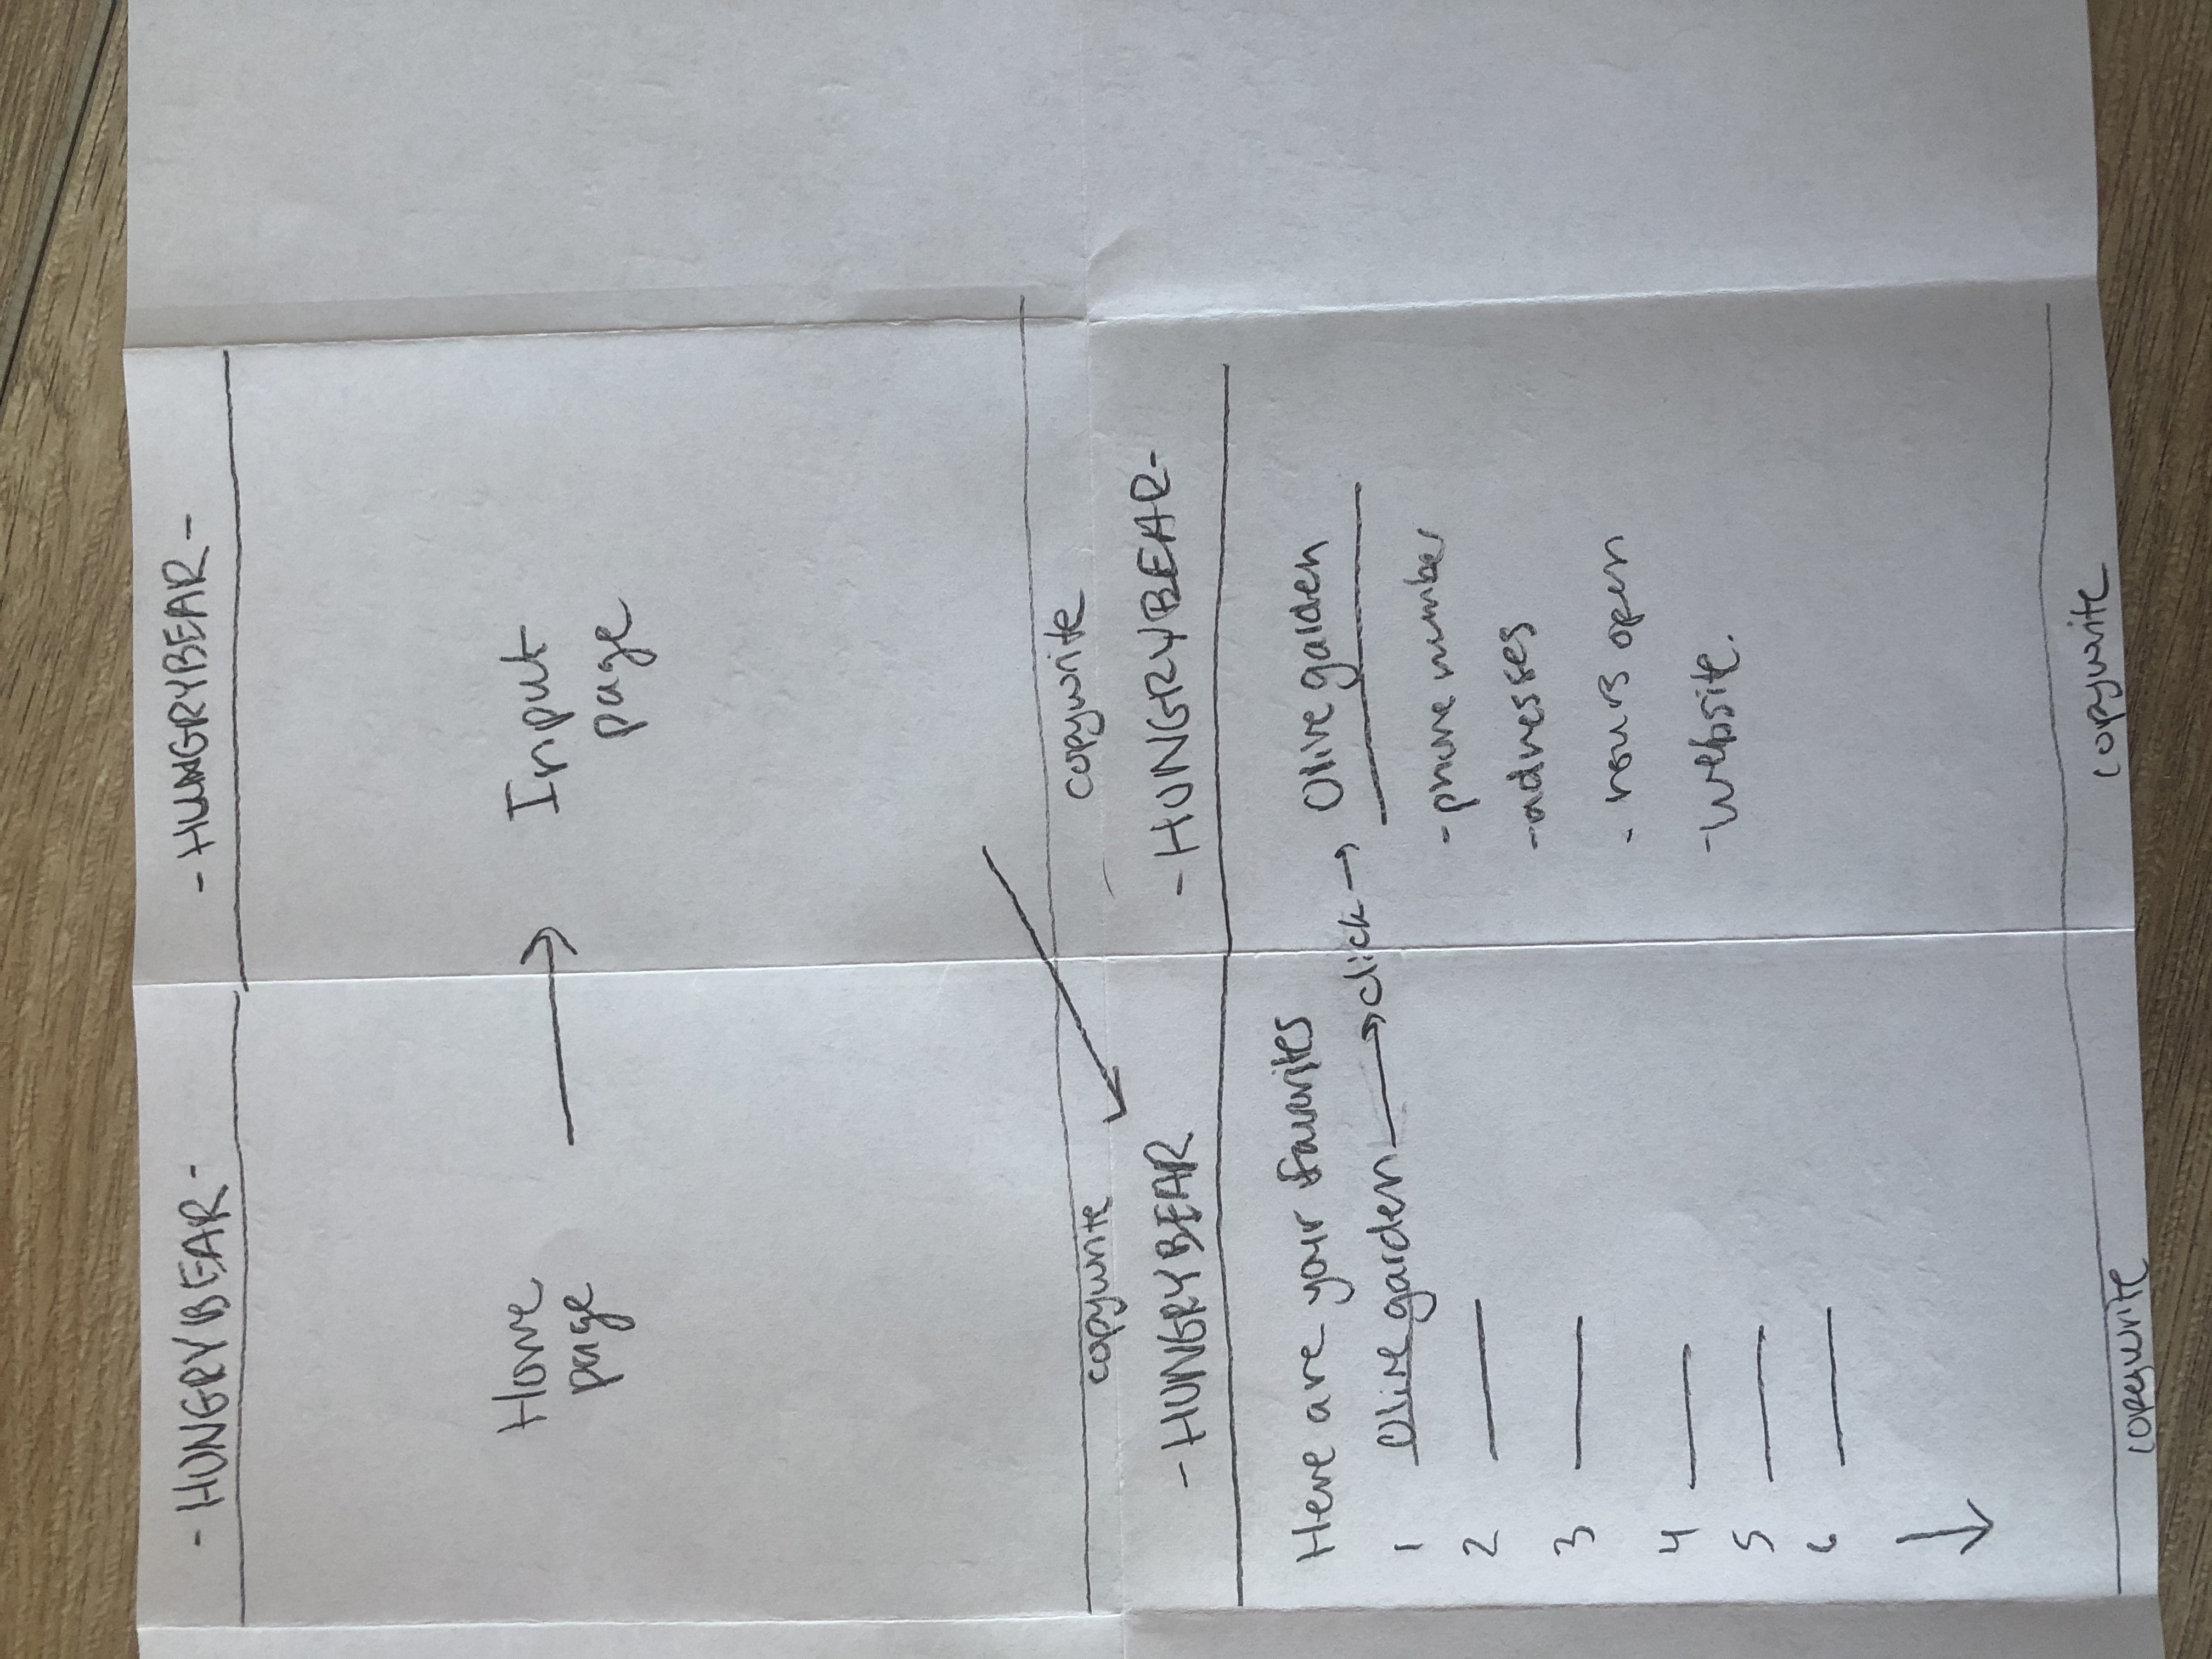 -HUNGRYBEAR-
Home
page
copywrite
-HUNGRYBEAR-
Input
page
copywrite
-HUNGRYBEAR
Here are your favorites
1 Olive garden → click →
2
3
4
5
6
copywrite
-HUNGRYBEAR-
Olive garden
-phone number
-adresses
- hours open
-website.
copywrite